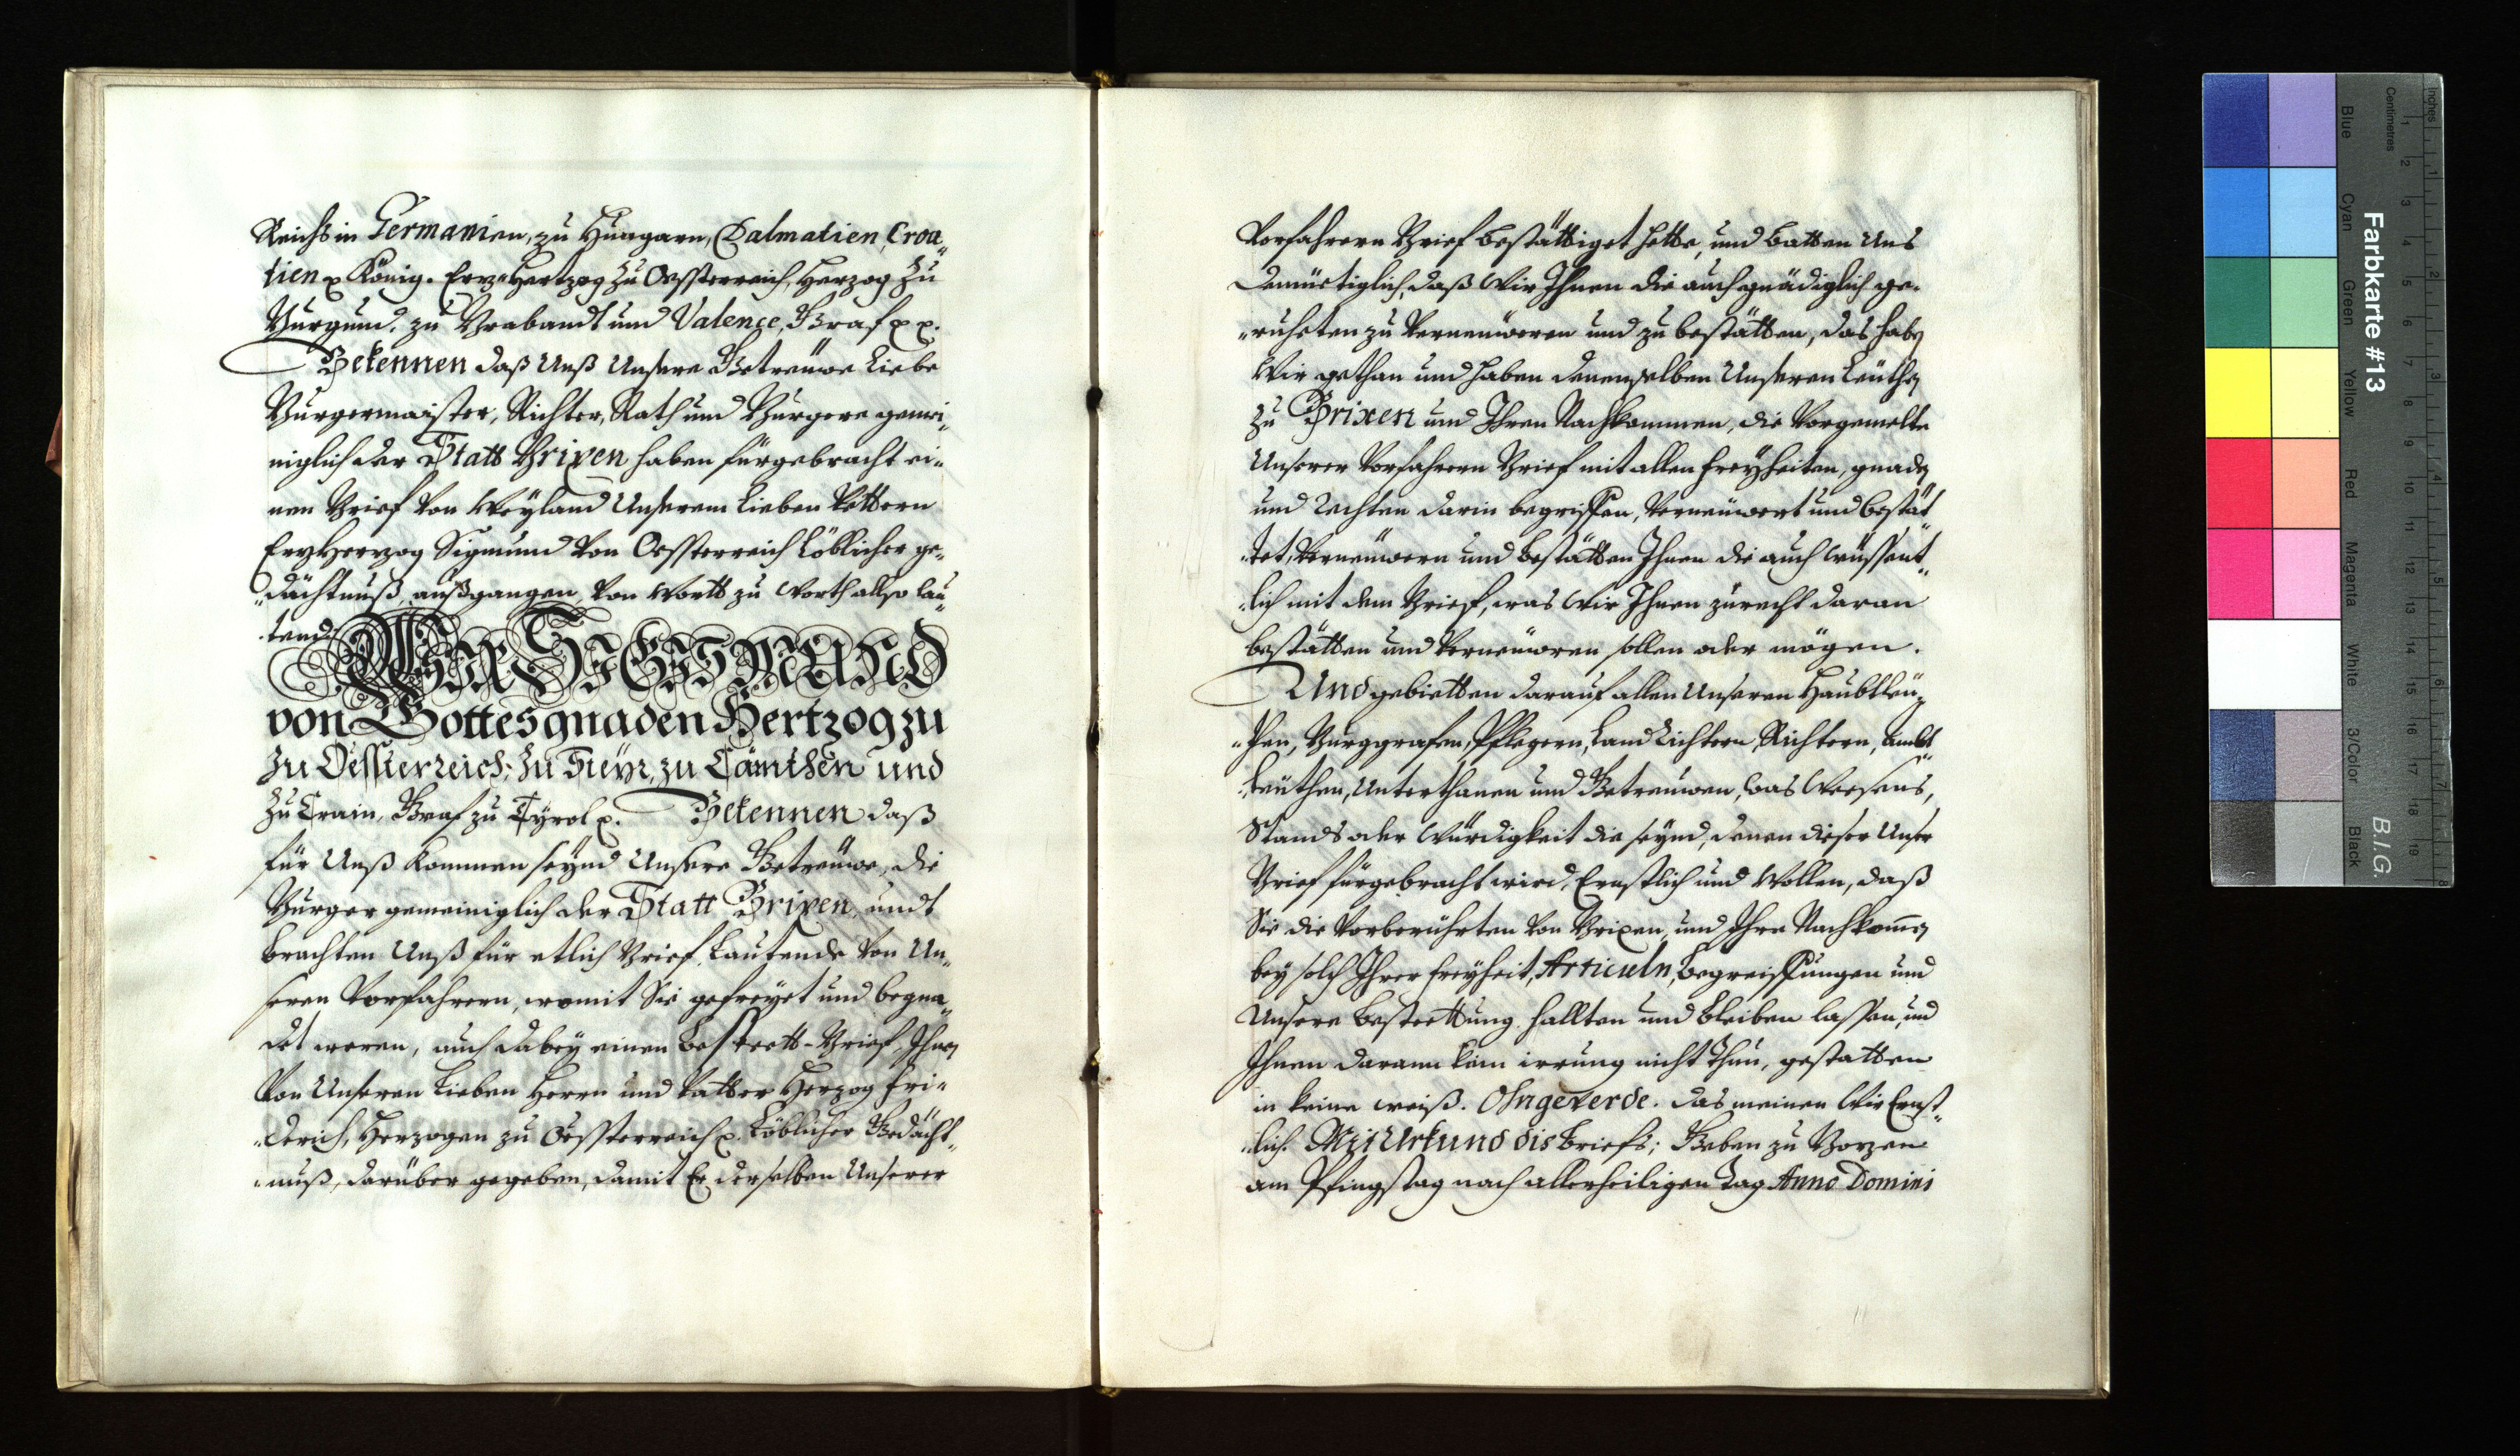 Reichs in Germanien, zu Hungarn, Dalmatien, Croa„
tien p König. Erz„Hertzog zu Oessterreich, Herzog zu
Burgund, zu Brabandt und Valence, Graf p p.
Bekennen daß Unß Unsere Getreüwe Liebe
Burgermaister, Richter, Rath und Burgere gemei„
niglich der Statt Brixen haben fürgebracht ei„
nen Brief von Weyland Unserem Lieben Vettern
ErzHerzog Sigmund von Oessterreich Löblicher ge„
„dächtnuß, außgangen, von Wortt zu Worth allso lau„
„tend
WIR SIGISMUND
von Gottes gnaden Hertzog zu
Zu Oessterreich, zu Steyr, zu Cärnthen und
Zu Crain, Graf zu Tyrol p. Bekennen daß
für Unß kommen seynd Unsere Getreüwe, die
Burger gemeiniglich der Statt Brixen, undt
brachten Unß für etlich Brief, Lautende von Un„
seren Vorfahrern, womit Sie gefreyet und begna„
det weren, auch dabey einen Bestett-Brief, Ihnen
von Unseren Lieben Herrn und Vatter Herzog Fri„
„derich, Herzogen zu Oessterreich p. Löblicher Gedächt„
„nuß, darüber gegeben, damit Er derselben Unserer
Vorfahrern Brief bestättiget hette, und batten Uns
demüetiglich, daß Wir Ihnen die auch gnädiglich ge„
„ruheten zu verneuweren und zu bestätten, das haben
Wir gethan und haben denenselben Unseren Leüthen
zu Brixen und Ihren Nachkommen, die Vorgemelte
Unserer Vorfahrern Brief mit allen Freyheiten, gnaden
und Rechten darin begriffen, verneüwert und bestät
„tet, verneüwern und bestätten Ihnen die auch wüssent„
„lich mit dem Brief, was Wir Ihnen zurecht daran
bestätten und verneüweren sollen oder mögen.
Und gebietten darauf allen Unseren Haubtleü„
„then, Burggrafen, Pflegern, Land Richtern, Richtern, Ambt
„leüthen, Unterthanen und Getreuwen, was Weesens,
Stands oder Würdigkeit die seynd, denen dieser Unser
Brief fürgebracht wird, Ernstlich und Wollen, daß
Sie die Vorberührten von Brixen, und Ihre Nachkom̄en
bey solch Ihrer Freyheit, Articuln, Begreiffungen und
Unsere Bestettung hallten und bleiben lassen, und
Ihnen darann kein irrung nicht thun, gestatten
in keine weiß. Ohngeverde. Das meinen Wir Ernst„
„lich. Mit Urkund dis Briefs; Geben zu Bozen
am Pfingstag nach allerheiligen Tag Anno Domini
Farbkarte #13
B.I.G.
Inches
Centimetres
Blue
Cyan
Green
Yellow
Red
Magenta
White
3/Color
Black
1
2
3
4
5
6
7
8
9
10
11
12
13
14
15
16
17
18
19
1
2
3
4
5
6
7
8